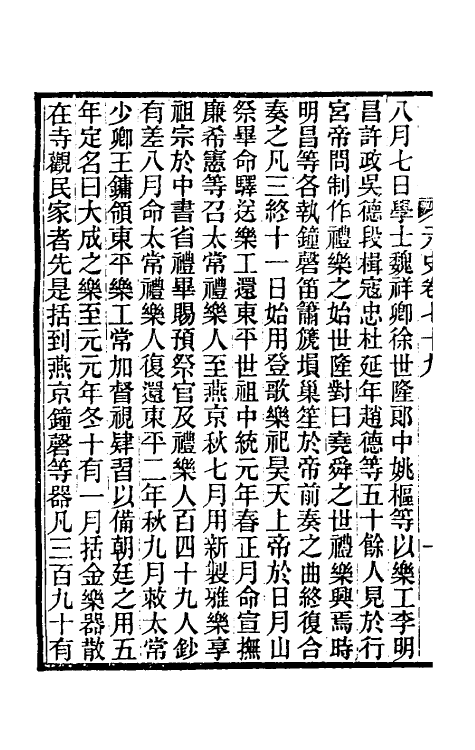 元史卷七十九
一
八月七日學士魏祥卿徐世隆郎中姚樞等以樂工李明
昌許政吳德段楫寇忠杜延年趙德等五十餘人見於行
宮帝問制作禮樂之始世隆對曰堯舜之世禮樂興焉時
明昌等各執鐘磬笛簫篪塤巢笙於帝前奏之曲終復合
奏之凡三終十一日始用登歌樂祀昊天上帝於日月山
祭畢命驛送樂工還東平世祖中統元年春正月命宣撫
廉希憲等召太常禮樂人至燕京秋七月用新製雅樂享
祖宗於中書省禮畢賜預祭官及禮樂人百四十九人鈔
有差八月命太常禮樂人復還東平二年秋九月敕太常
少卿王鏞領東平樂工常加督視肄習以備朝廷之用五
年定名曰大成之樂至元元年冬十有一月括金樂器散
在寺觀民家者先是括到燕京鐘磬等器凡三百九十有